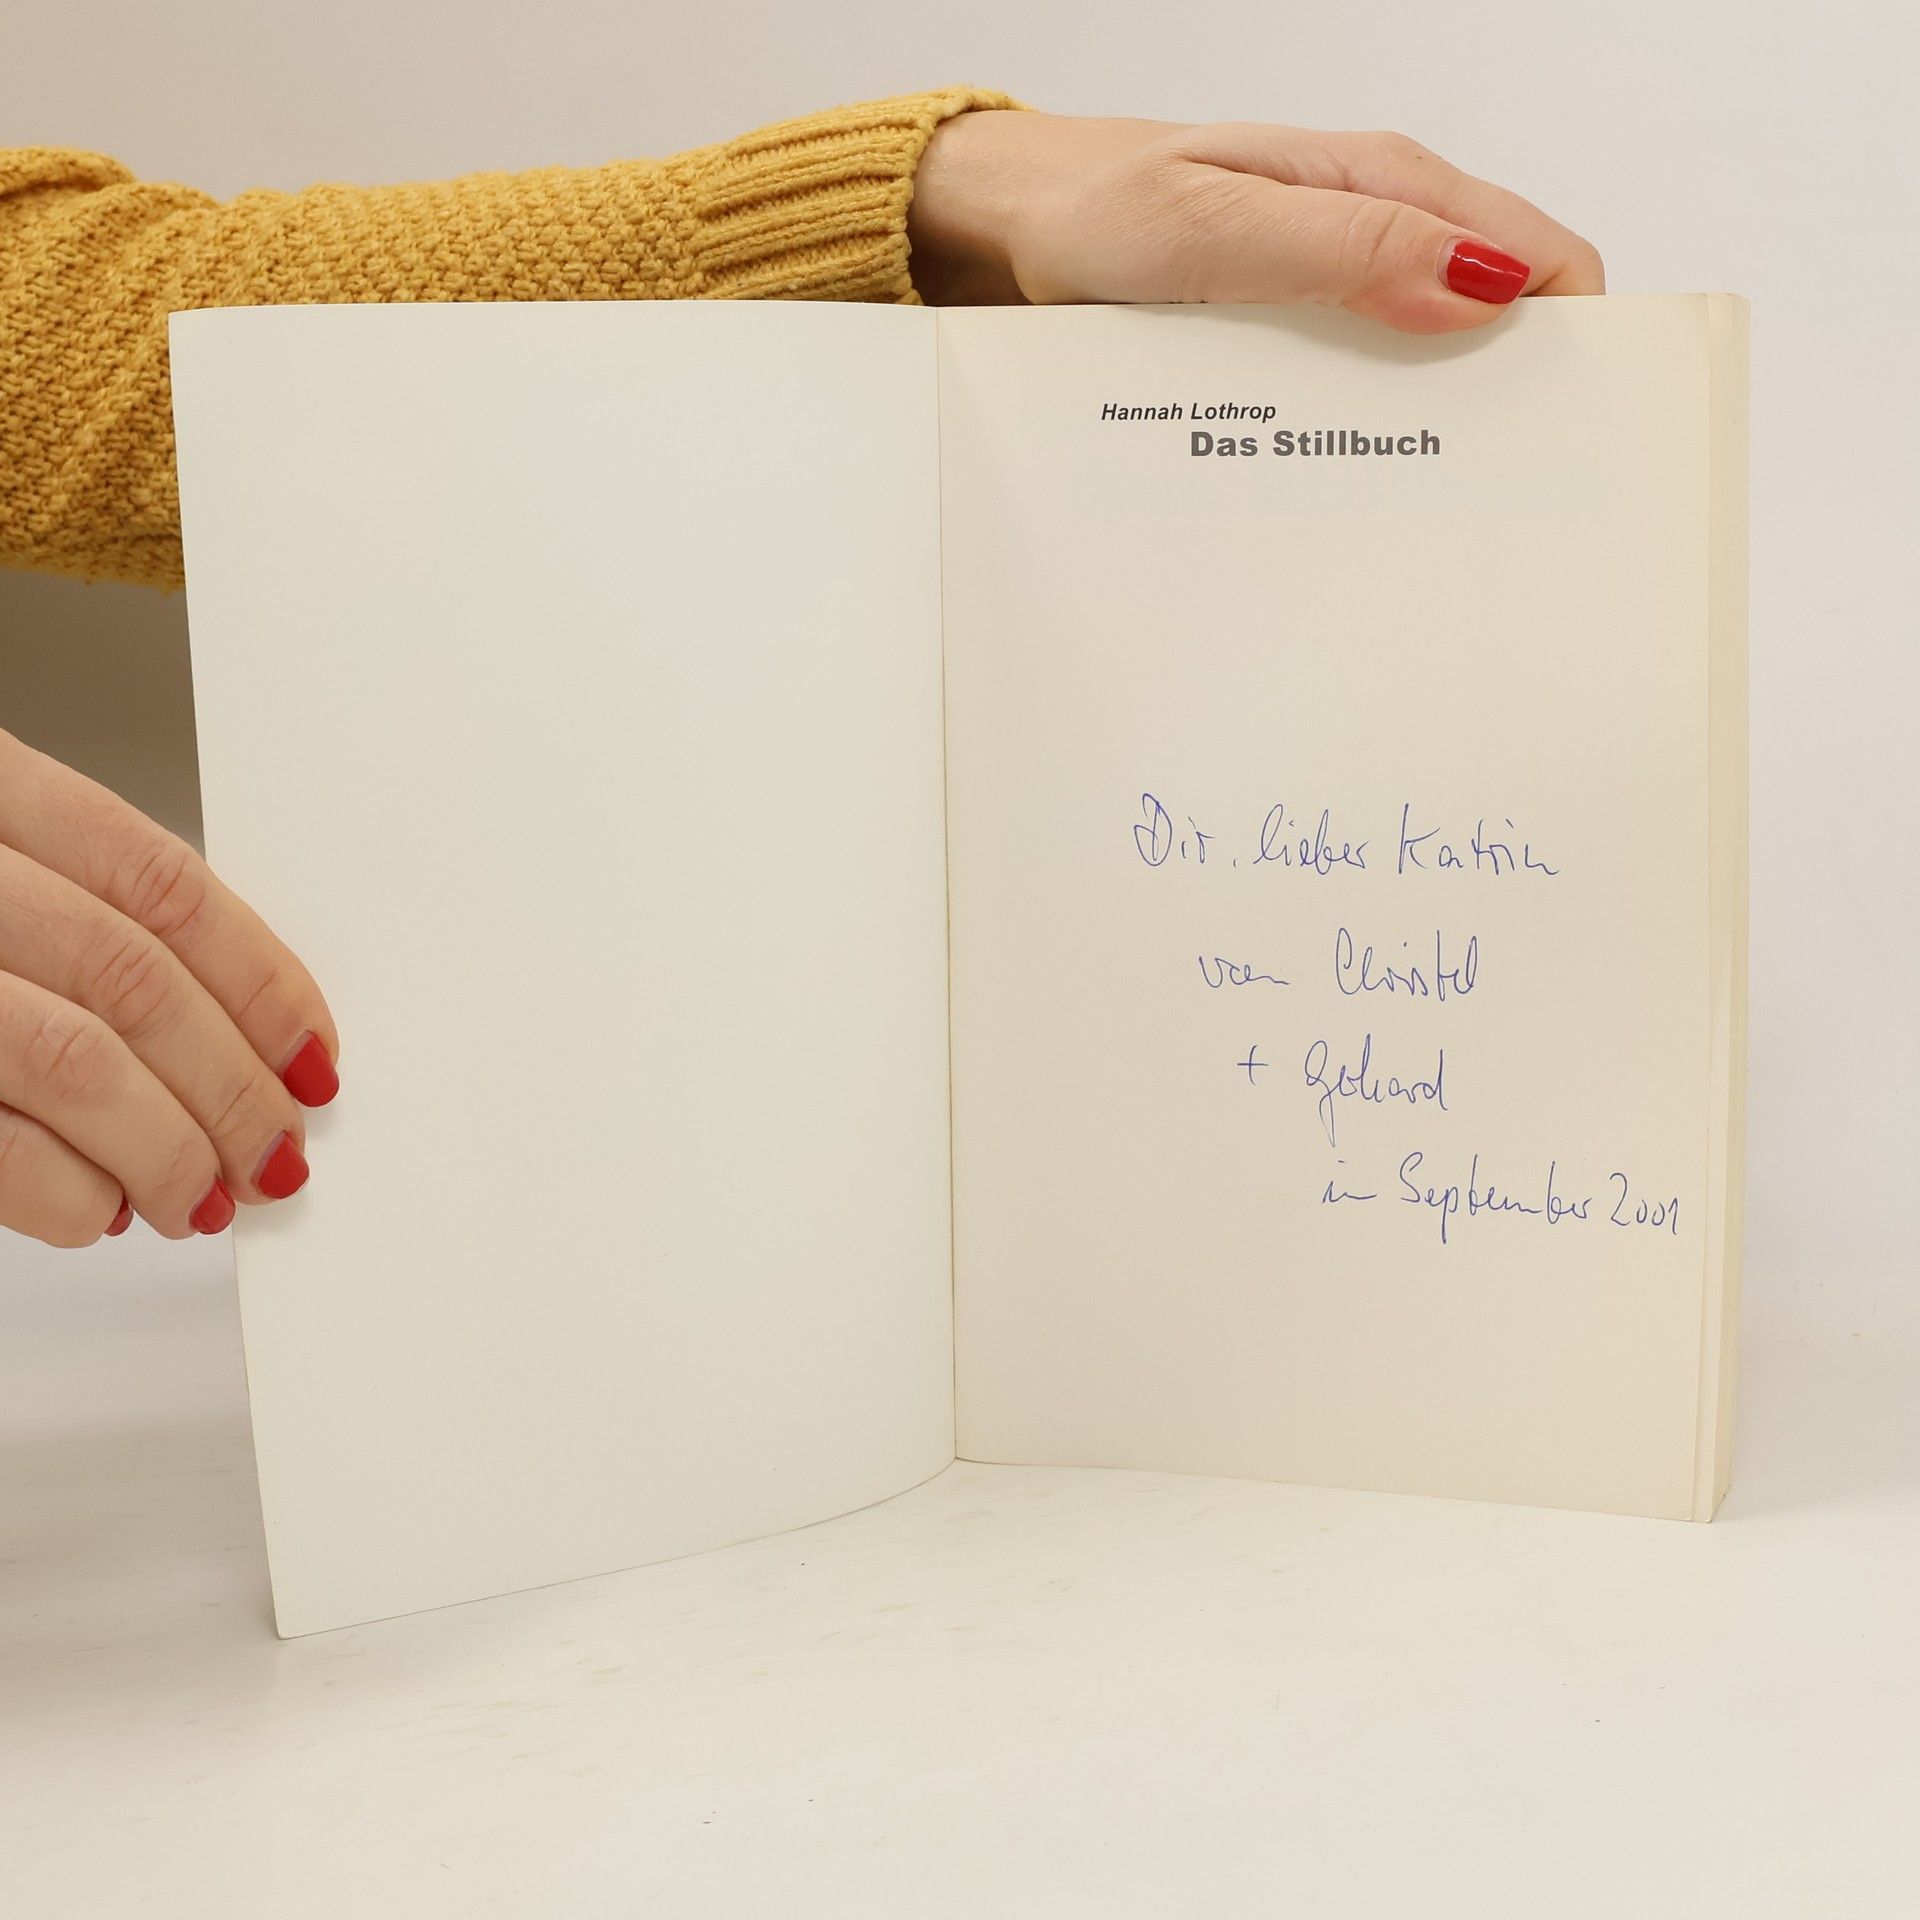 Hannah Lothrop
Das Stillbuch
Dir, lieber Katrin
von Christel
+ Gerhard
im September 2001